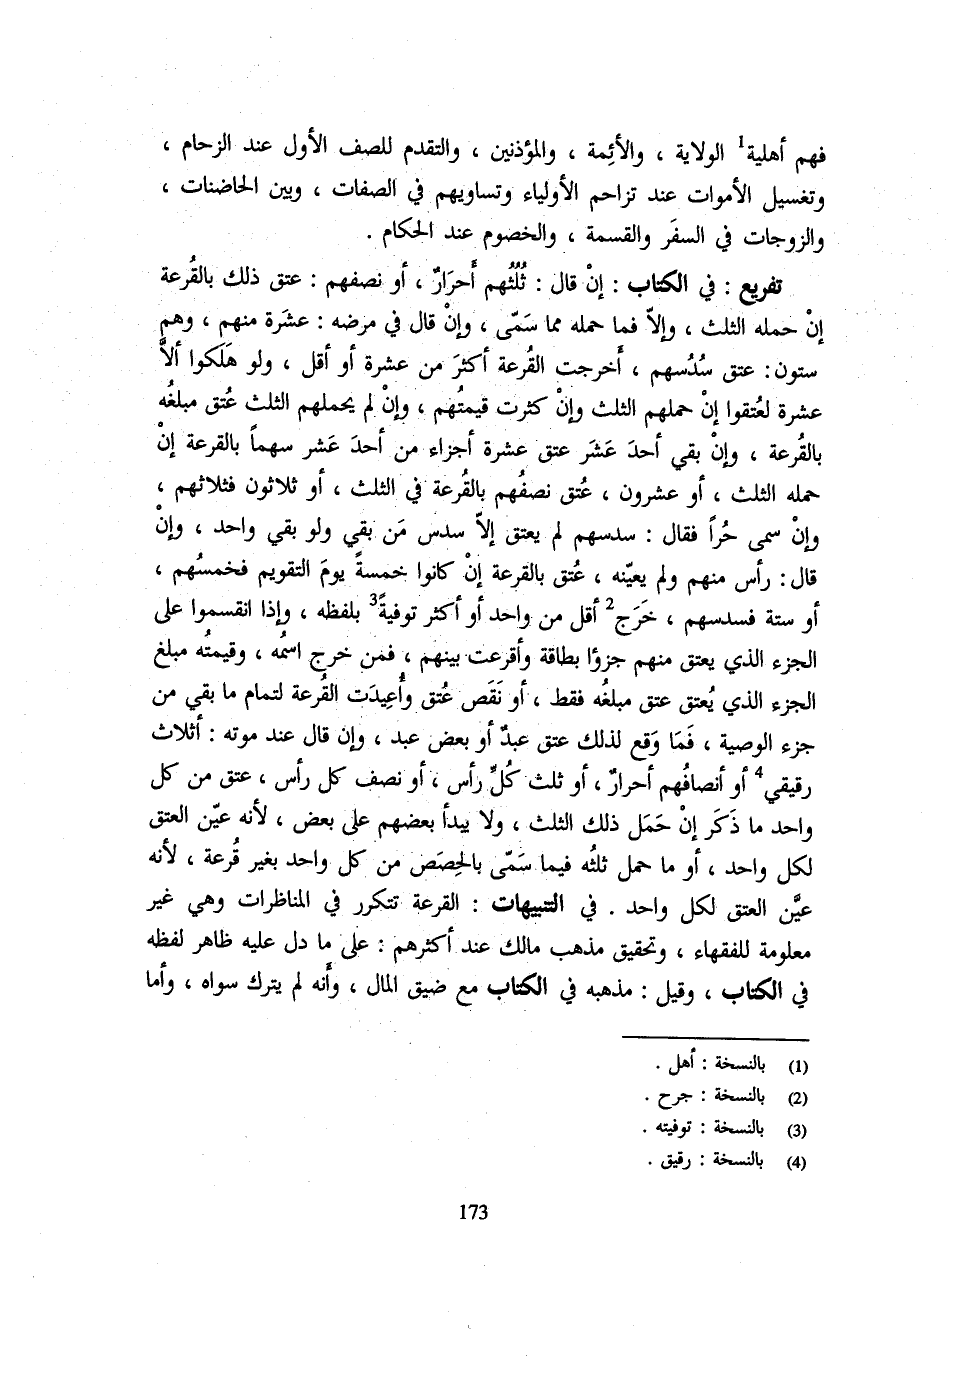 فهم أهلية1 الولاية ، والأئِمة ، والمؤذنين ، والتقدم للصف الأول عند الزحام ،
وتغسيل الأموات عند تزاحم الأولياء وتساويهم في الصفات ، وبين الحاضنات ،
والزوجات في السفَر والقسمة ، والخصوم عند الحكام .
تفريع : في الكتاب : إنْ قال : ثُلُثُهم أَحرَارٌ ، أو نصفهم : عتق ذلك بالقُرعة
إنْ حمله الثلث ، وإلاّ فما حمله مما سَمّى ، وإنْ قال في مرضه : عشَرة منهم ، وهم
ستون : عتق سُدُسهم ، أَخرجت القُرعة أكثرَ من عشرة أو أقل ، ولو هَلَكوا ألاَّ
عشرة لعُتقوا إنْ حملهم الثلث وإنْ كثرت قيمتُهم ، وإنْ لم يحملهم الثلث عُتق مبلغُه
بالقُرعة ، وإنْ بقي أحدَ عَشَر عتق عشرة أجزاء من أحدَ عَشر سهماً بالقرعة إنْ
حمله الثلث ، أو عشرون ، عُتق نصفُهم بالقُرعة في الثلث ، أو ثلاثون فثلاثهم ،
وإنْ سمى حُراً فقال : سدسهم لم يعتق إلاّ سدس مَن بقي ولو بقي واحد ، وإنْ
قال : رأس منهم ولم يعيّنه ، عُتق بالقرعة إنْ كانوا خمسةً يومَ التقويم فخمسُهم ،
أو ستة فسدسهم ، خَرَج2 أقل من واحد أو أكثر توفيةً3 بلفظه ، وإذا انقسموا على
الجزء الذي يعتق منهم جزؤا بطاقة وأقرعت بينهم ، فمن خرج اسمُه ، وقيمتُه مبلغ
الجزء الذي يُعتق عتق مبلغُه فقط ، أو نَقَص عُتق وأُعِيدَت القُرعة لتمام ما بقي من
جزء الوصية ، فَمَا وَقع لذلك عتق عبدٌ أو بعض عبد ، وإن قال عند موته : أثلاث
رقيقي4 أو أنصافُهم أحرارٌ ، أو ثلث كُلِّ رأس ، أو نصف كل رأس ، عتق من كل
واحد ما ذَكَر إنْ حَمَل ذلك الثلث ، ولا يبدأ بعضهم على بعض ، لأنه عيّن العتق
لكل واحد ، أو ما حمل ثلثُه فيما سَمّى بالحِصَص من كل واحد بغير قُرعة ، لأنه
عيَّن العتق لكل واحد . في التنبيهات : القرعة تتكرر في المناظرات وهي غير
معلومة للفقهاء ، وتحقيق مذهب مالك عند أكثرهم : على ما دل عليه ظاهر لفظه
في الكتاب ، وقيل : مذهبه في الكتاب مع ضيق المال ، وأَنه لم يترك سواه ، وأما
(1) بالنسخة : أهل .
(2) بالنسخة : جرح .
(3) بالنسخة : توفيته .
(4) بالنسخة : رقيق .
173